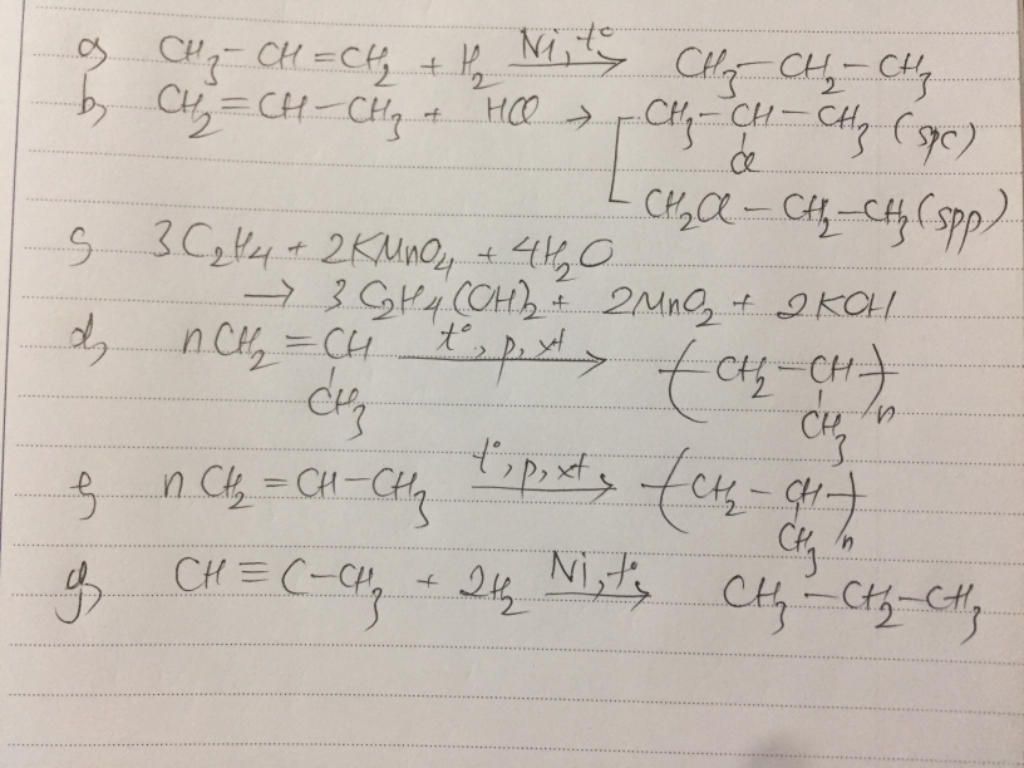 a, CH3 - CH = CH2 + H2 Ni, t° → CH3 - CH2 - CH3
b, CH2 = CH - CH3 + HCl → CH3 - CH - CH3 (spc)
Cl
CH2Cl - CH2 - CH3 (spp)
c, 3C2H4 + 2KMnO4 + 4H2O
→ 3C2H4(OH)2 + 2MnO2 + 2KOH
d, nCH2 = CH t°, p, xt → ( CH2 - CH )n
CH3 CH3
e, nCH2 = CH - CH3 t°, p, xt → ( CH2 - CH )n
CH3
g, CH ≡ C - CH3 + 2H2 Ni, t° → CH3 - CH2 - CH3